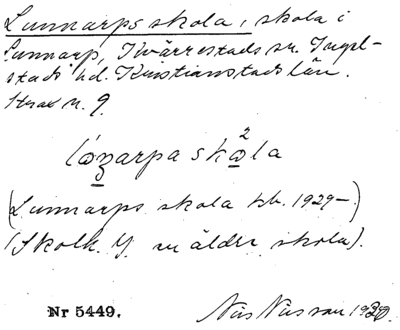 Lunnarps skola, skola i
Lunnarp, Kvärrestads sn. Ingel-
stads hd. Kristianstads län.
Strax n. 9.
skola
(Lunnarps skola kb. 1929—)
(Skolk. y. m älder skola).
Nr 5449.
Nils Nilsson 1930